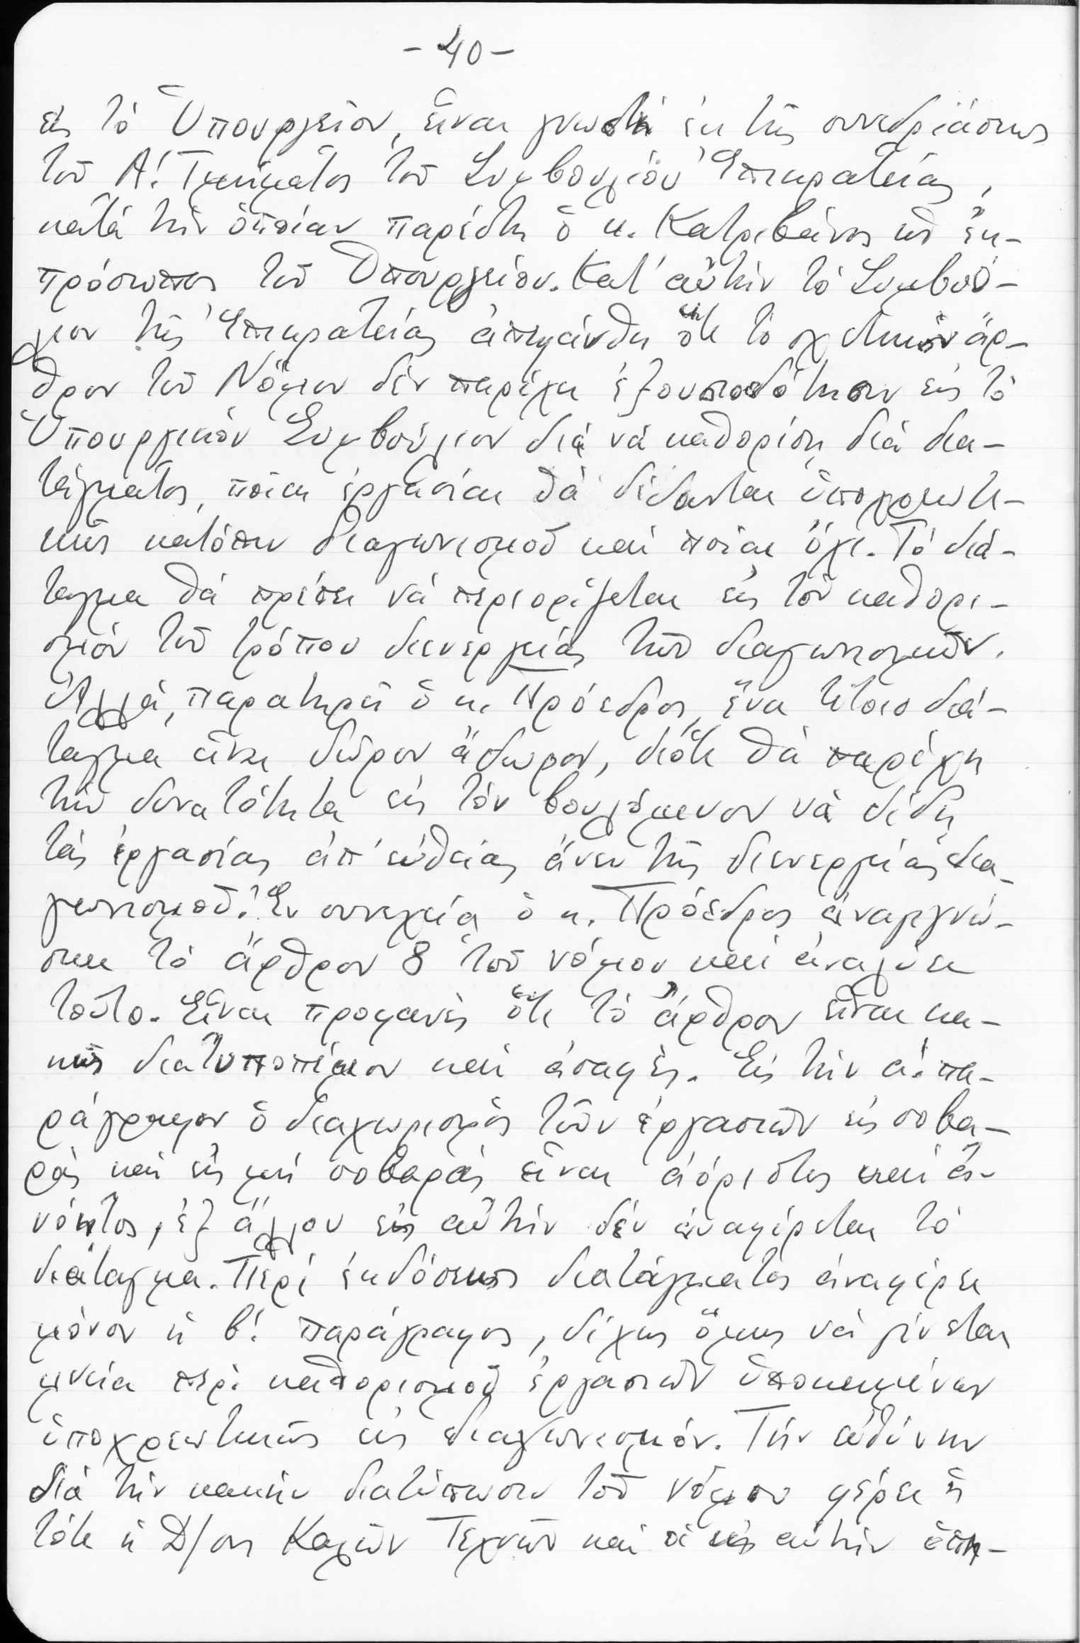 - 40 -
εἰς τό Ὑπουργεῖον, εἶναι γνωστή ἐκ τῆς συνεδριάσεως
τοῦ Α΄. Τμήματος τοῦ Συμβουλίου Ἐπικρατείας,
κατά τήν ὁποίαν παρέστη ὁ κ. Κατριβάνος ὡς ἐκ-
πρόσωπος τοῦ Ὑπουργείου. Κατ' αὐτήν τό Συμβού-
λιον τῆς Ἐπικρατείας ἀπεφάνθη ὅτι τό σχετικόν ἄρ-
θρον τοῦ Νόμου δέν παρέχει ἐξουσιοδότησιν εἰς τό
Ὑπουργικόν Συμβούλιον διά νά καθορίσῃ διά δια-
τάγματος, ποῖαι ἐργασίαι θά δίδωνται ὑποχρεωτι-
κῶς κατόπιν διαγωνισμοῦ καί ποῖαι ὄχι. Τό διά-
ταγμα θά πρέπει νά περιορίζεται εἰς τόν καθορι-
σμόν τοῦ τρόπου διενεργείας τῶν διαγωνισμῶν.
Ἀλλά, παρατηρεῖ ὁ κ. Πρόεδρος, ἕνα τέτοιο διά-
ταγμα εἶναι δῶρον ἄδωρον, διότι θά παρέχῃ
τήν δυνατότητα εἰς τόν βουλόμενον νά δίδῃ
τάς ἐργασίας ἀπ' εὐθείας ἄνευ τῆς διενεργείας δια-
γωνισμοῦ. Ἐν συνεχείᾳ ὁ κ. Πρόεδρος ἀναγιγνώ-
σκει τό ἄρθρον 8 τοῦ νόμου καί ἀναλύει
τοῦτο. Εἶναι προφανές ὅτι τό ἄρθρον εἶναι κα-
κῶς διατυπωμένον καί ἀσαφές. Εἰς τήν α΄. πα-
ράγραφον ὁ διαχωρισμός τῶν ἐργασιῶν εἰς σοβα-
ράς καί εἰς μή σοβαράς εἶναι ἀόριστος καί ἀ-
νόητος, ἐξ ἄλλου εἰς αὐτήν δέν ἀναφέρεται τό
διάταγμα. Περί ἐκδόσεως διατάγματος ἀναφέρει
μόνον ἡ β΄. παράγραφος, δίχως ὅμως νά γίνεται
μνεία περί καθορισμοῦ ἐργασιῶν ὑποκειμένων
ὑποχρεωτικῶς εἰς διαγωνισμόν. Τήν εὐθύνην
διά τήν κακήν διατύπωσιν τοῦ νόμου φέρει ἡ
τότε ἡ Δ/σις Καλῶν Τεχνῶν καί οἱ εἰς αὐτήν ὑπη-